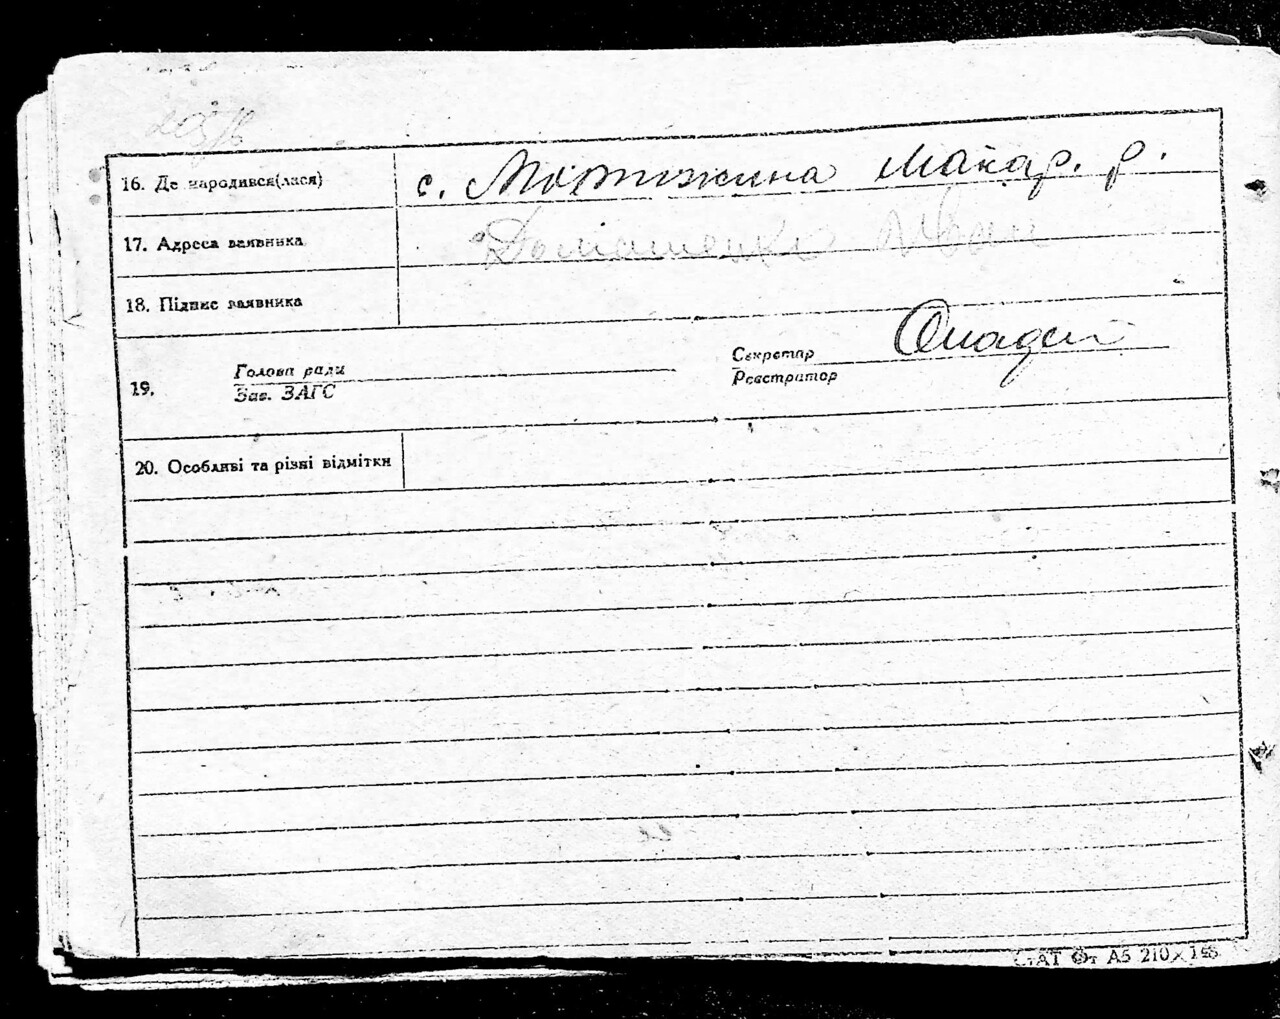 16. Де народився(лася) с. Мотижина Макар. р.
17. Адреса заявника
18. Підпис заявника
Секретар
Голова ради
Реєстратор
19.
Зав. ЗАГС
20. Особливі та різні відмітки
А5 210×148